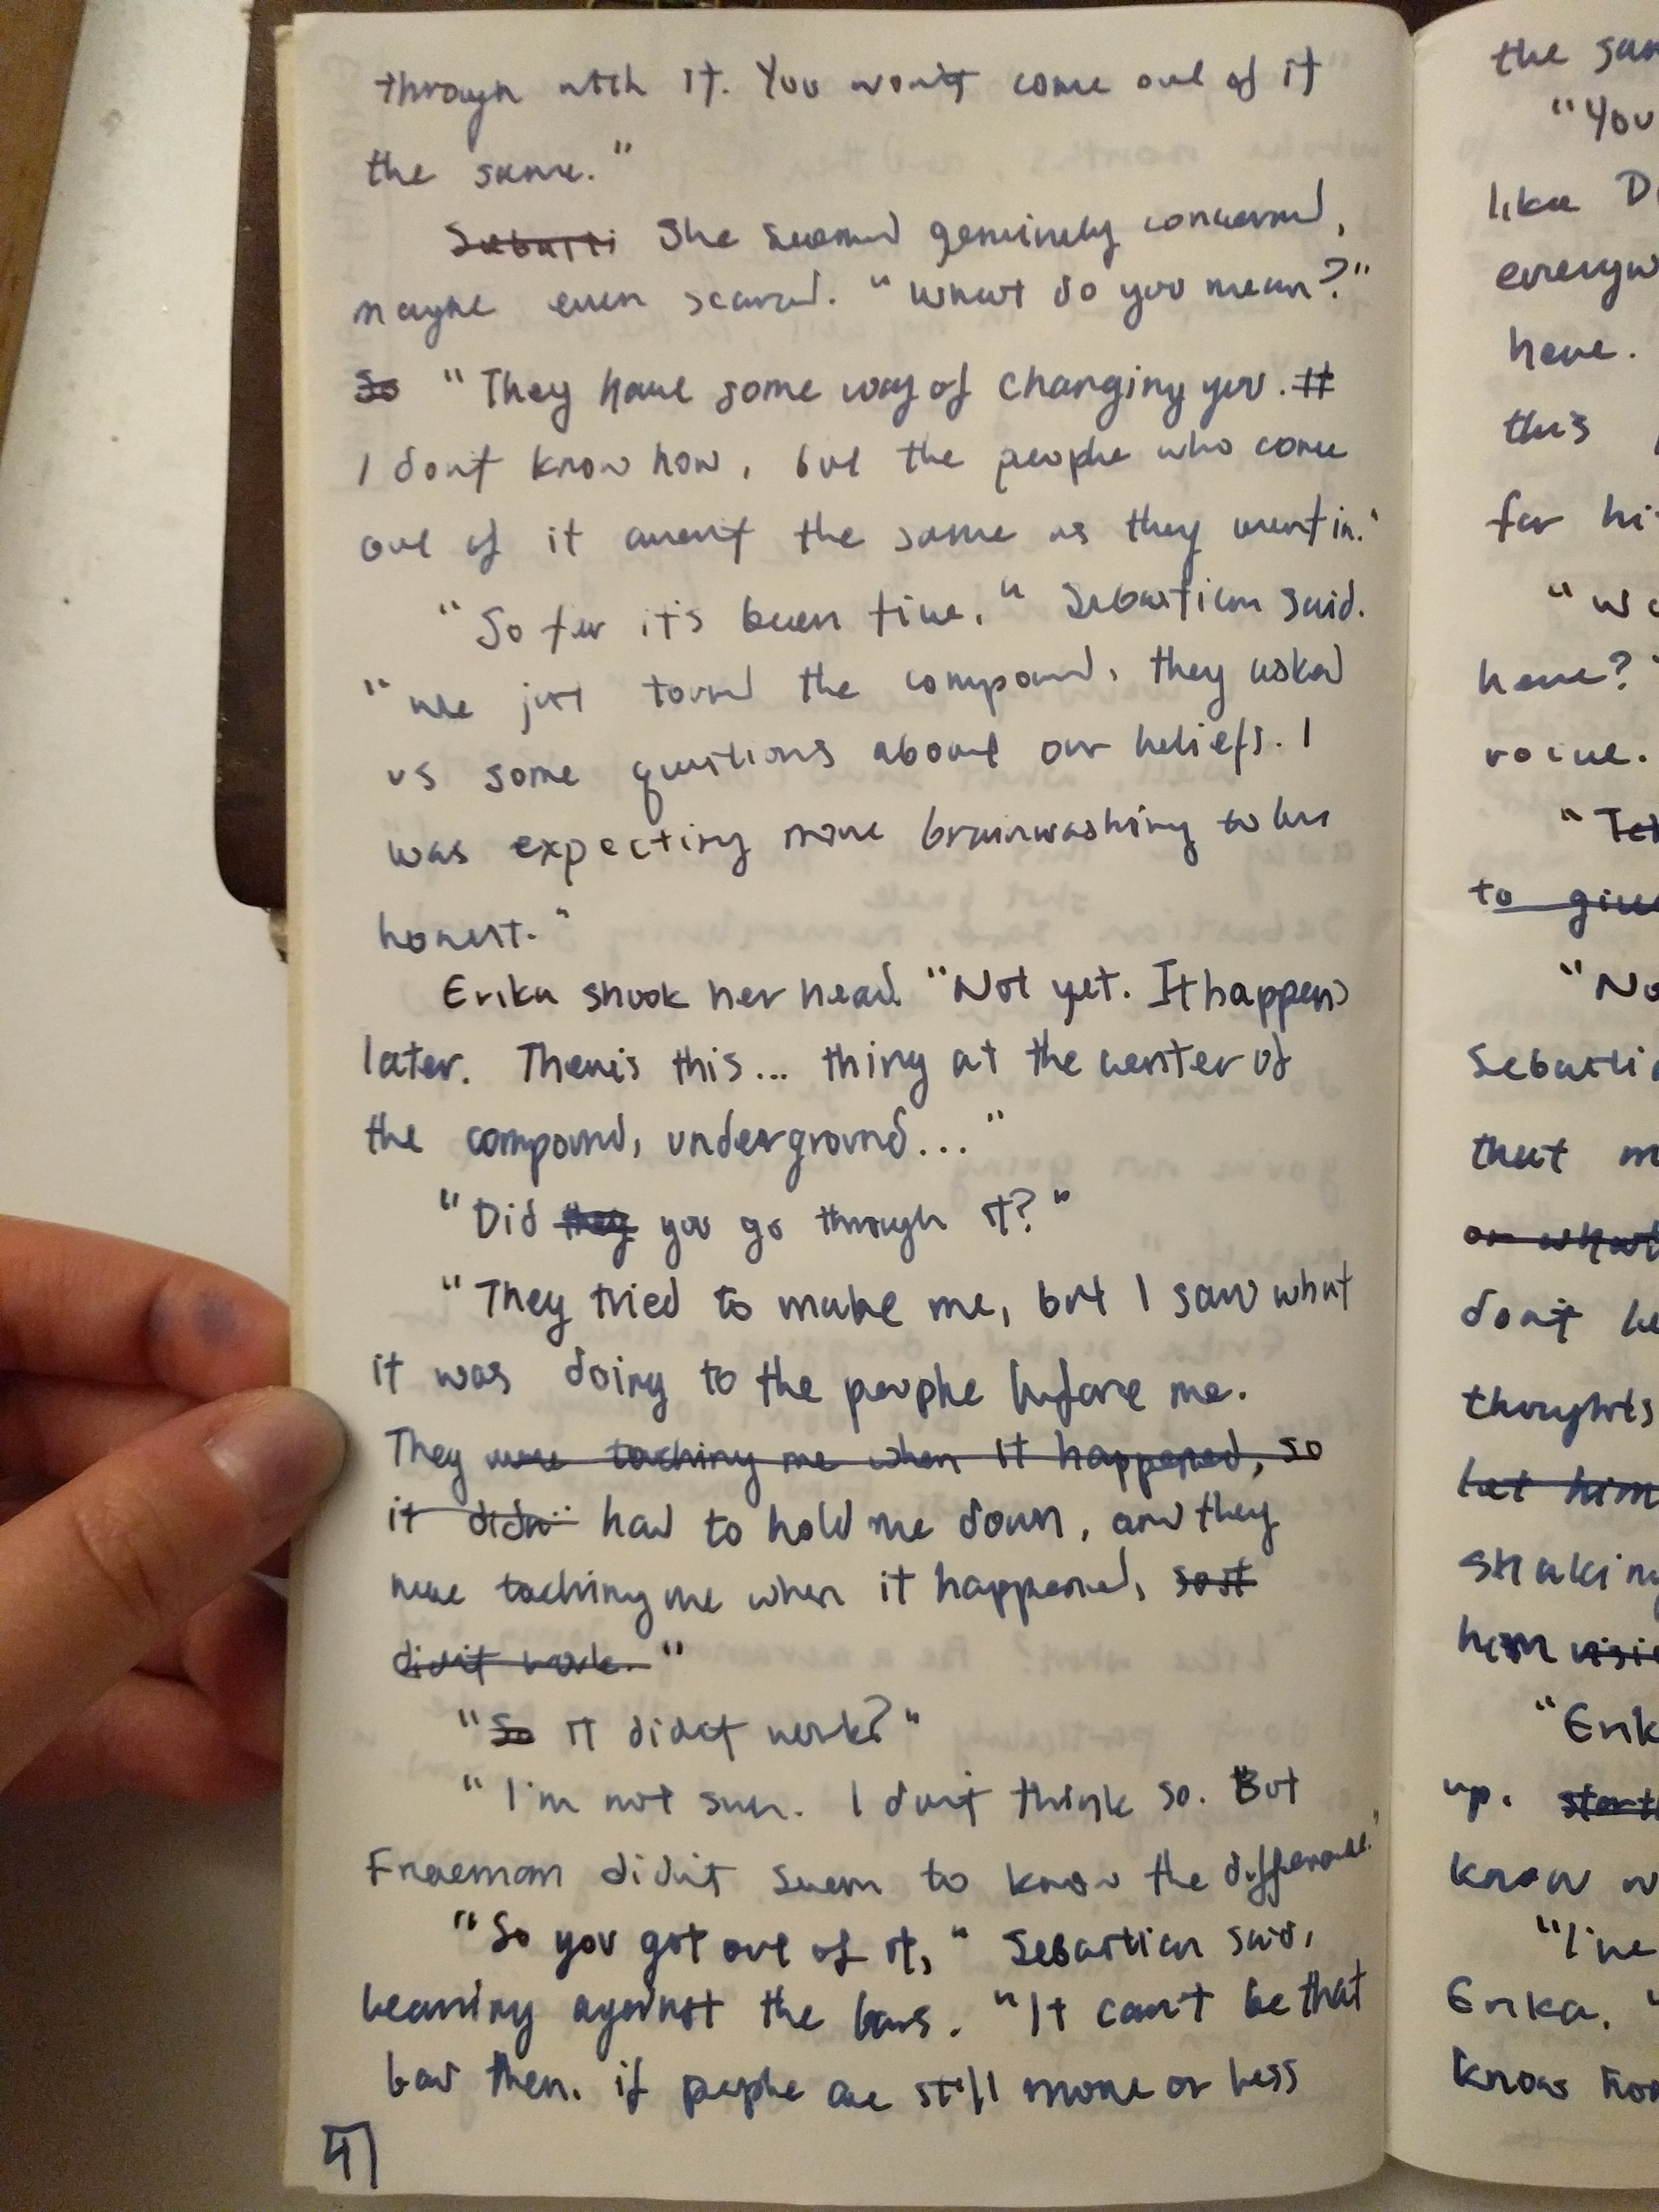 through with it. You won't come out of it
the same."
Sebasti She seemed genuinely concerned,
maybe even scared. "What do you mean?"
So "They have some way of changing you. It
I don't know how, but the people who come
out of it aren't the same as they went in."
"So far it's been fine," Sebastian said.
"We just toured the compound, they asked
us some questions about our beliefs. I
was expecting more brainwashing to be
honest."
Erika shook her head. "Not yet. It happens
later. There's this... thing at the center of
the compound, underground..."
"Did they you go through it?"
"They tried to make me, but I saw what
it was doing to the people before me.
They were touching me when it happened, so
it didn' had to hold me down, and they
were touching me when it happened, so it
didn't work."
"So it didn't work?"
"I'm not sure. I don't think so. But
Freeman didn't seem to know the difference."
"So you got out of it," Sebastian said,
leaning against the bars. "It can't be that
bad then. if people are still more or less
41
the
"You
like
have.
this
for
have?"
to give
"No
that
don't
thoughts
let him
shaking
him
"Erik
up.
know
"I've
Erika.
know